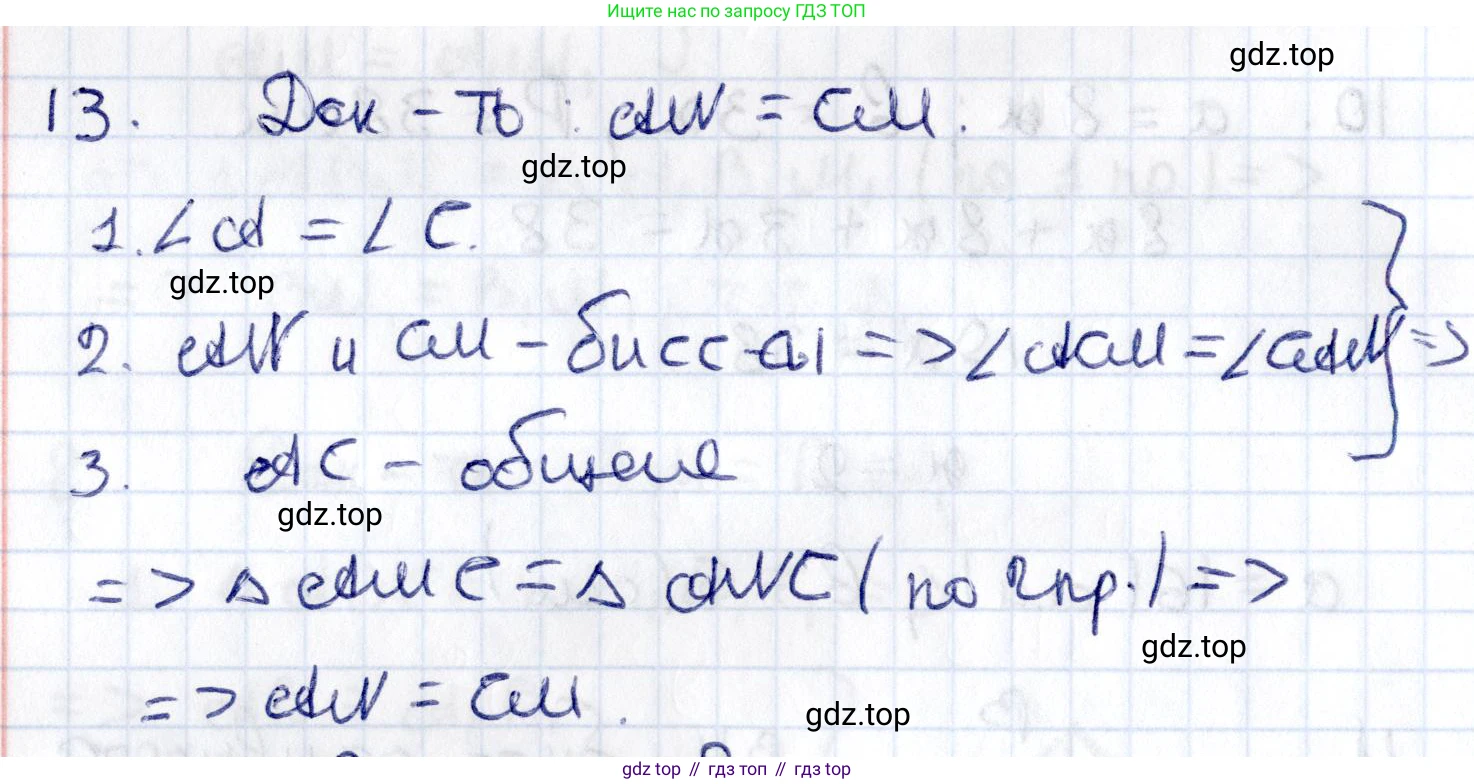 Ищите нас по запросу ГДЗ ТОП
gdz.top
13. Док-ть: AN = CM.
gdz.top
1. ∠A = ∠C.
gdz.top
2. AN и CM - бисс-ы => ∠ACM = ∠CAN } =>
3. AC - общая
gdz.top
=> △AMC = △ANC (по 2 пр.) =>
gdz.top
=> AN = CM.
gdz.top
gdz top // гдз топ // gdz top